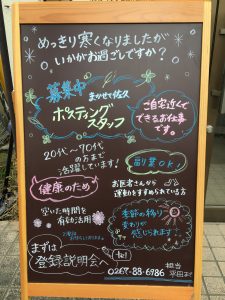 めっきり寒くなりましたが
いかがお過ごしですか?
募集中
まかせて佐久
ポスティング
スタッフ
ご自宅近くで
できるお仕事
です。
20代〜70代
の方まで
活躍しています!
副業OK!
健康のため
お医者さんから
運動をすすめられている方
空いた時間を
有効活用
季節の移り
変わりが
感じられます!
まずは
登録説明会へ
担当
0267-88-6986
平田まで